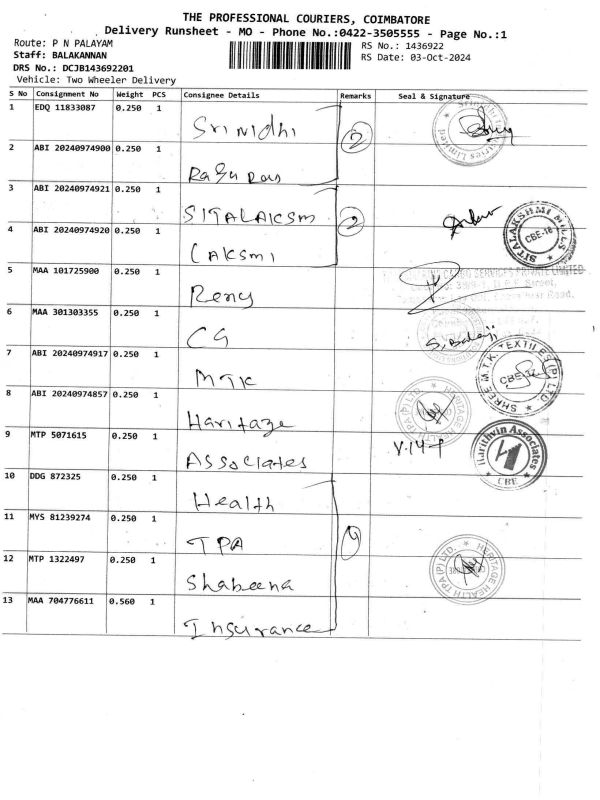 THE PROFESSIONAL COURIERS, COIMBATORE
Delivery Runsheet - MO - Phone No.:0422-3505555 - Page No.:1
Route: P N PALAYAM
RS No.: 1436922
Staff: BALAKANNAN
RS Date: 03-Oct-2024
DRS No.: DCJB143692201
Vehicle: Two Wheeler Delivery
S No Consignment No Weight PCS Consignee Details Remarks Seal & Signature
1 EDQ 11833087 0.250 1 Srinidhi 2
2 ABI 20240974900 0.250 1 Ragu Ram
3 ABI 20240974921 0.250 1 SITALAKSM 2
4 ABI 20240974920 0.250 1 LAKSMI
SITALAKSHMI MILLS
CBE-18
5 MAA 101725900 0.250 1 Reny
SERVICES PRIVATE LIMITED
6 MAA 301303355 0.250 1 CG S. Balaji
7 ABI 20240974917 0.250 1 MTK
SHREE M.T.K. TEXTILES (P) LTD
8 ABI 20240974857 0.250 1 Haritage
HERITAGE HEALTH TPA (P) LTD.
9 MTP 5071615 0.250 1 Associates
Harithvin Associates
CBE
10 DDG 872325 0.250 1 Health
11 MYS 81239274 0.250 1 TPA
12 MTP 1322497 0.250 1 Shabeena
HERITAGE HEALTH TPA (P) LTD.
13 MAA 704776611 0.560 1 Insurance